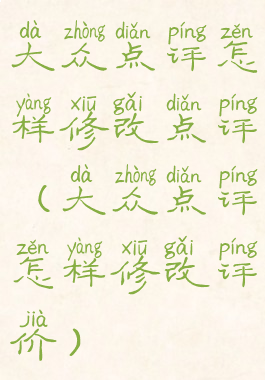 dà zhòng diǎn píng zěn
大众点评怎
yàng xiū gǎi diǎn píng
样修改点评
dà zhòng diǎn píng
(大众点评
zěn yàng xiū gǎi píng
怎样修改评
jià
价)